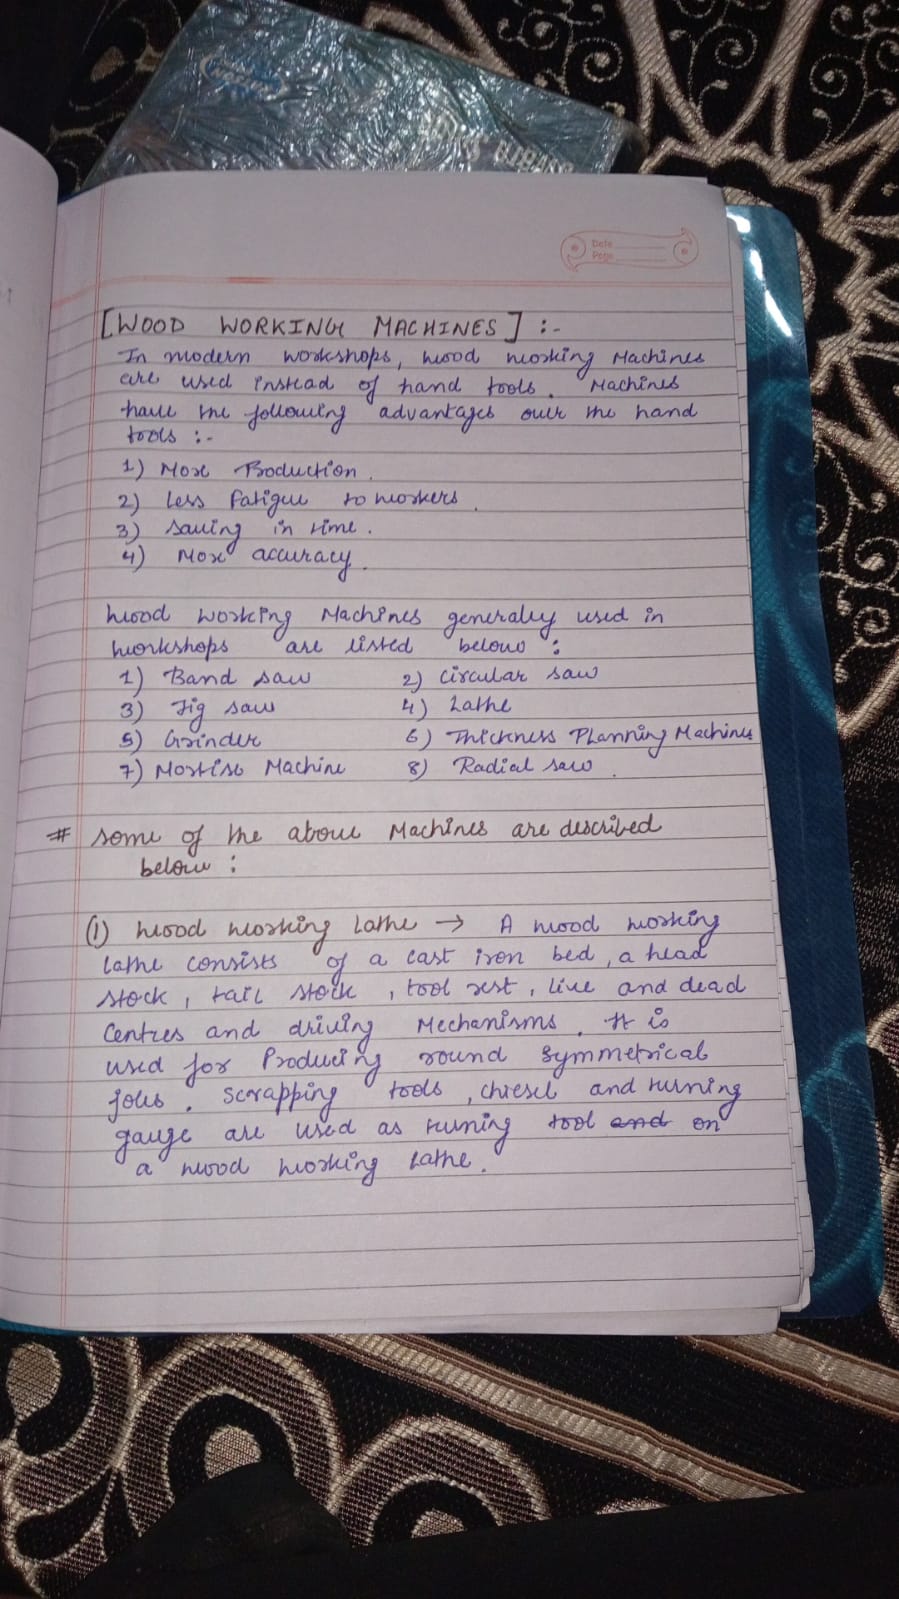 Date
Page
[WOOD WORKING MACHINES] :-
In modern workshops, wood working Machines
are used instead of hand tools. Machines
have the following advantages over the hand
tools :-
1) More Production.
2) Less fatigue to workers.
3) Saving in time.
4) More accuracy.
Wood working Machines generally used in
workshops are listed below :
1) Band saw 2) Circular saw
3) Jig saw 4) Lathe
5) Grinder 6) Thickness Planning Machines
7) Mortise Machine 8) Radial saw.
# Some of the above Machines are described
below :
(1) Wood working Lathe → A wood working
lathe consists of a cast iron bed, a head
stock, tail stock, tool rest, live and dead
centres and driving Mechanisms. It is
used for Producing round symmetrical
jobs. Scrapping tools, chiesel and turning
gauge are used as turning tool and on
a wood working Lathe.